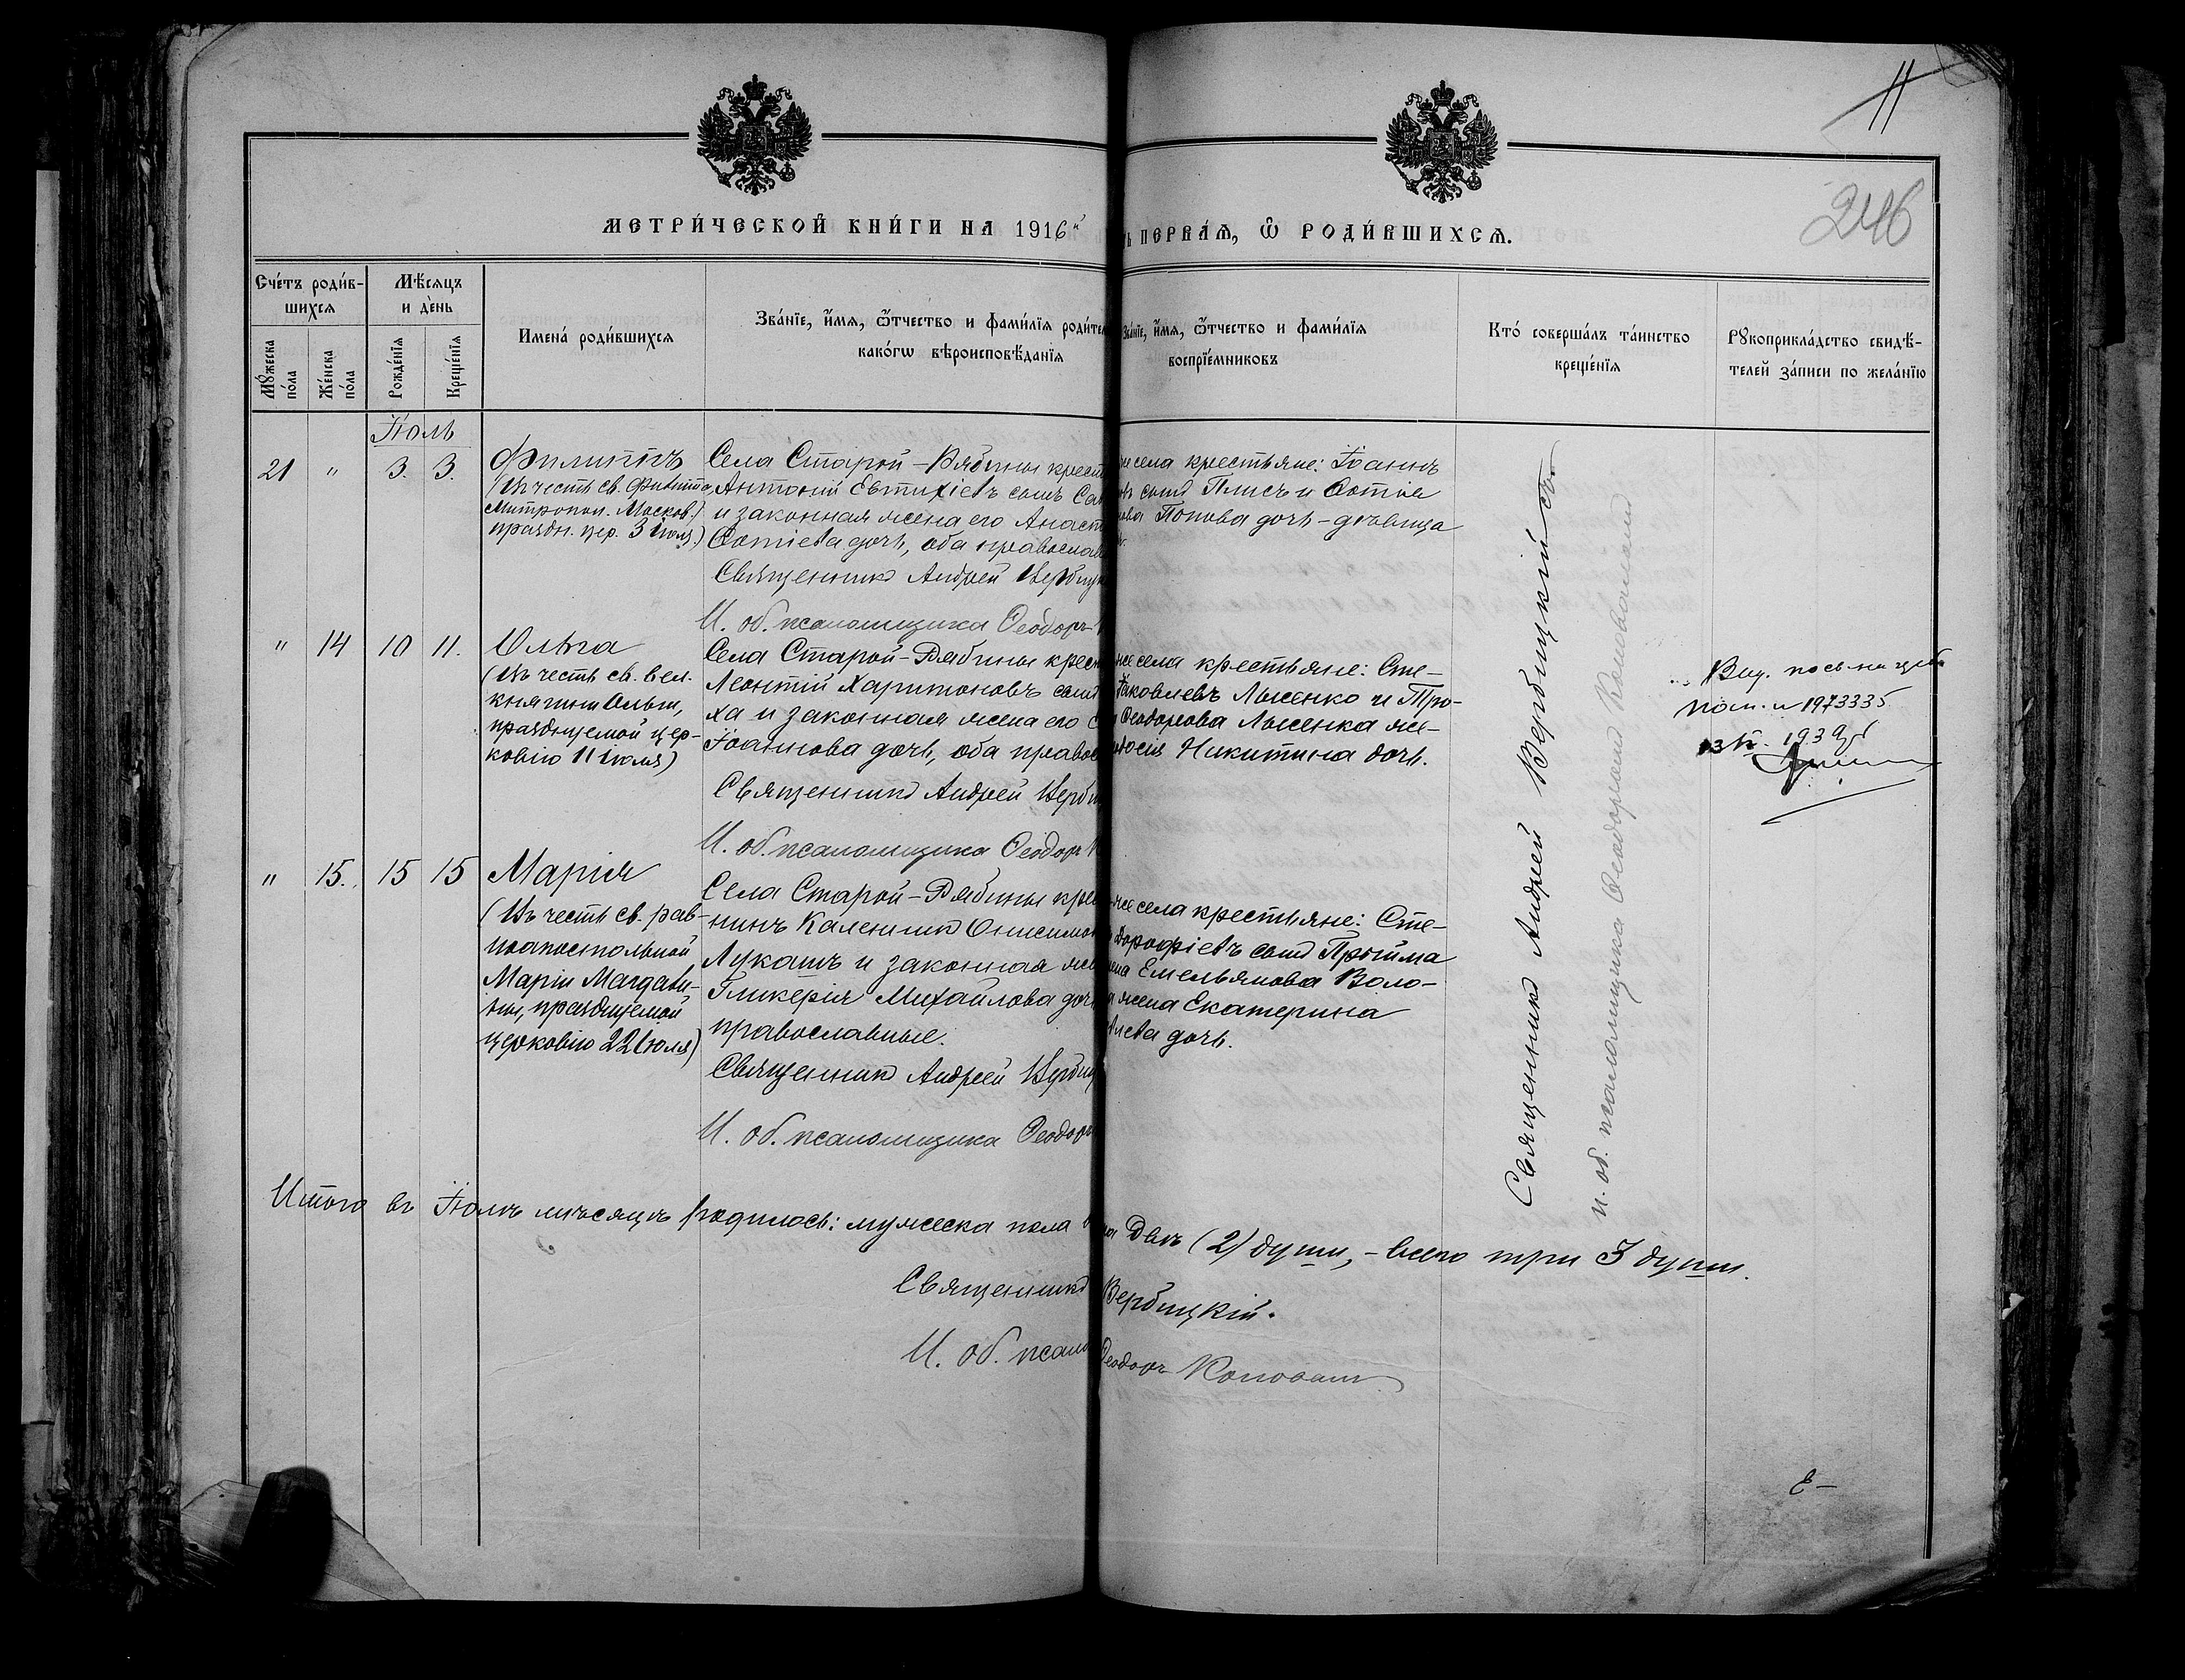 11
246
МЕТРИ́ЧЕСКОЙ КНИ́ГИ НА 1916й
ПЕРВАЯ, Ѿ РОДИ́ВШИХСЯ.
Счéтъ роди́в-
шихся
Мѣ́сяцъ
и дéнь
Мꙋ́жеска
пóла
Жéнска
пóла
Рождéнїя
Крещéнїя
Именá роди́вшихся
Звáнїе, и́мя, ѻ́тчество и фами́лїя родите
какóгѡ вѣроисповѣ́данїя
Звáнїе, и́мя, ѻ́тчество и фами́лїя
воспрїéмниковъ
Ктó совершáлъ тáинство
крещéнїя
Рꙋкоприклáдство свидѣ́-
телей зáписи по желáнїю
Іюль
21 " 3. 3.
Филиппъ
(Въ честь св. Филиппа,
Митропол. Москов.)
праздн. цер. 3 іюля.)
Села Старой-Рябины крест
Антоній Евтихіевъ сынъ
и законная жена его Анаст
Фотіева дочь, оба православ
Священникъ Андрей Вербиц
И. об. псаломщика Ѳеодоръ
села крестьяне: Іоаннъ
сынъ Плисъ и
Попова дочь-дѣвица
" 14 10 11.
Ольга
(Въ честь св. вел.
княгини Ольги,
празднуемой цер-
ковію 11 іюля)
Села Старой-Рябины крест
Леонтій Харитоновъ сынъ
ха и законная жена его
Іоаннова дочь, оба правос
Священникъ Андрей Верби
И. об. псаломщика Ѳеодоръ
села крестьяне: Сте-
Яковлевъ Лысенко и Тро-
Ѳеодорова Лысенка же-
Никитина дочь.
1973335
1939
" 15. 15 15
Марія
(Въ честь св. рав-
ноапостольной
Маріи Магдали-
ны, празднуемой
церковію 22 іюля)
Села Старой-Рябины крес
нинъ Каленикъ Онисимов
Лукашъ и законная же
Гликерія Михайлова доч
православные.
Священникъ Андрей Вербиц
И. об. псаломщика Ѳеодоръ
же села крестьяне: Сте-
Дорофіевъ сынъ Пройма
Емельянова Воло-
жена Екатерина
дочь.
Священникъ Андрей Вербицкій
и. об. псаломщика Ѳеодоръ Коновалъ
Итого въ Іюлѣ мѣсяцѣ родилось: мужеска пола
двѣ (2) души, - всего три 3 души.
Священникъ
Вербицкій.
И. об. псало
Ѳеодоръ Коновалъ